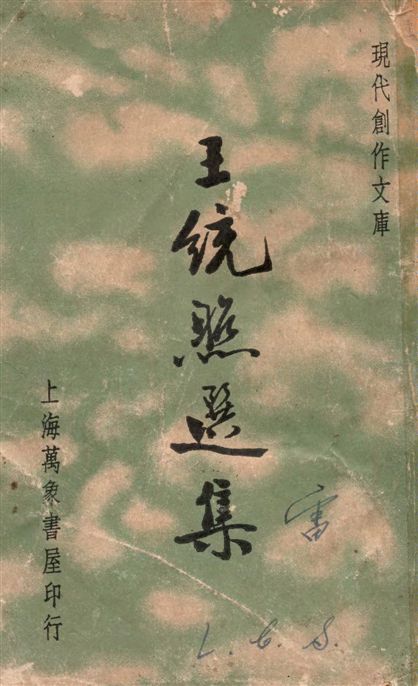 現代創作文庫
王統照選集
上海萬象書屋印行
審
L. C. S.